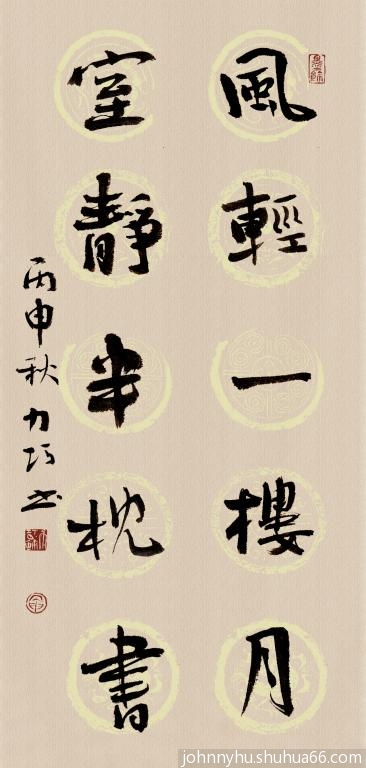 風輕一樓月
室靜半枕書
丙申秋力巧书
johnnyhu.shuhua66.com